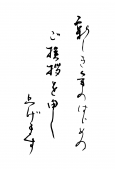 新しき年のはじめの
ご挨拶を申し
上げます